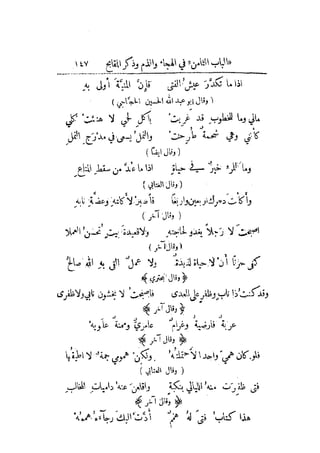 «الباب الثامن» في الهجاء والذم وذكر المقابح ١٤٧
اذا ما تكدر عيش الفتى فان المنية أولى به
( وقال ابو عبد الله الحسين الحجاجي )
مالي وما للخطوب قد غريت باكل لحمي لا هنئت كلي
كأنني وهي شحمة طرحت والنمل يسعى في مدرج النمل
( وقال ايضا )
وما للمرء خير في حياة اذا ما عد من سقط المتاع
( وقال العتابي )
( وقال آخر )
اصبحت لا رجلا يغدو لحاجته ولا قعيدة بيت تحسن العملا
( وقال آخر )
كفى حزنا أن لا حياة لذيذة ولا عمل الى به الله صالح
﴿ وقال البحتري ﴾
وقد كنت ذا ناب وظفر على العدى فاصبحت لا يخشون نابي ولا ظفري
﴿ وقال آخر ﴾
﴿ وقال آخر ﴾
فلو كان همي واحدا لاحتملته ولكن همومي جمة لا اطيقها
( وقال العتابي )
فتى ظفرت منه الليالي بنكبة واقلعن عنه داميات المخالب
﴿ وقال آخر ﴾
هذا كتاب فتى له همم أدت اليك رجاءه هممه